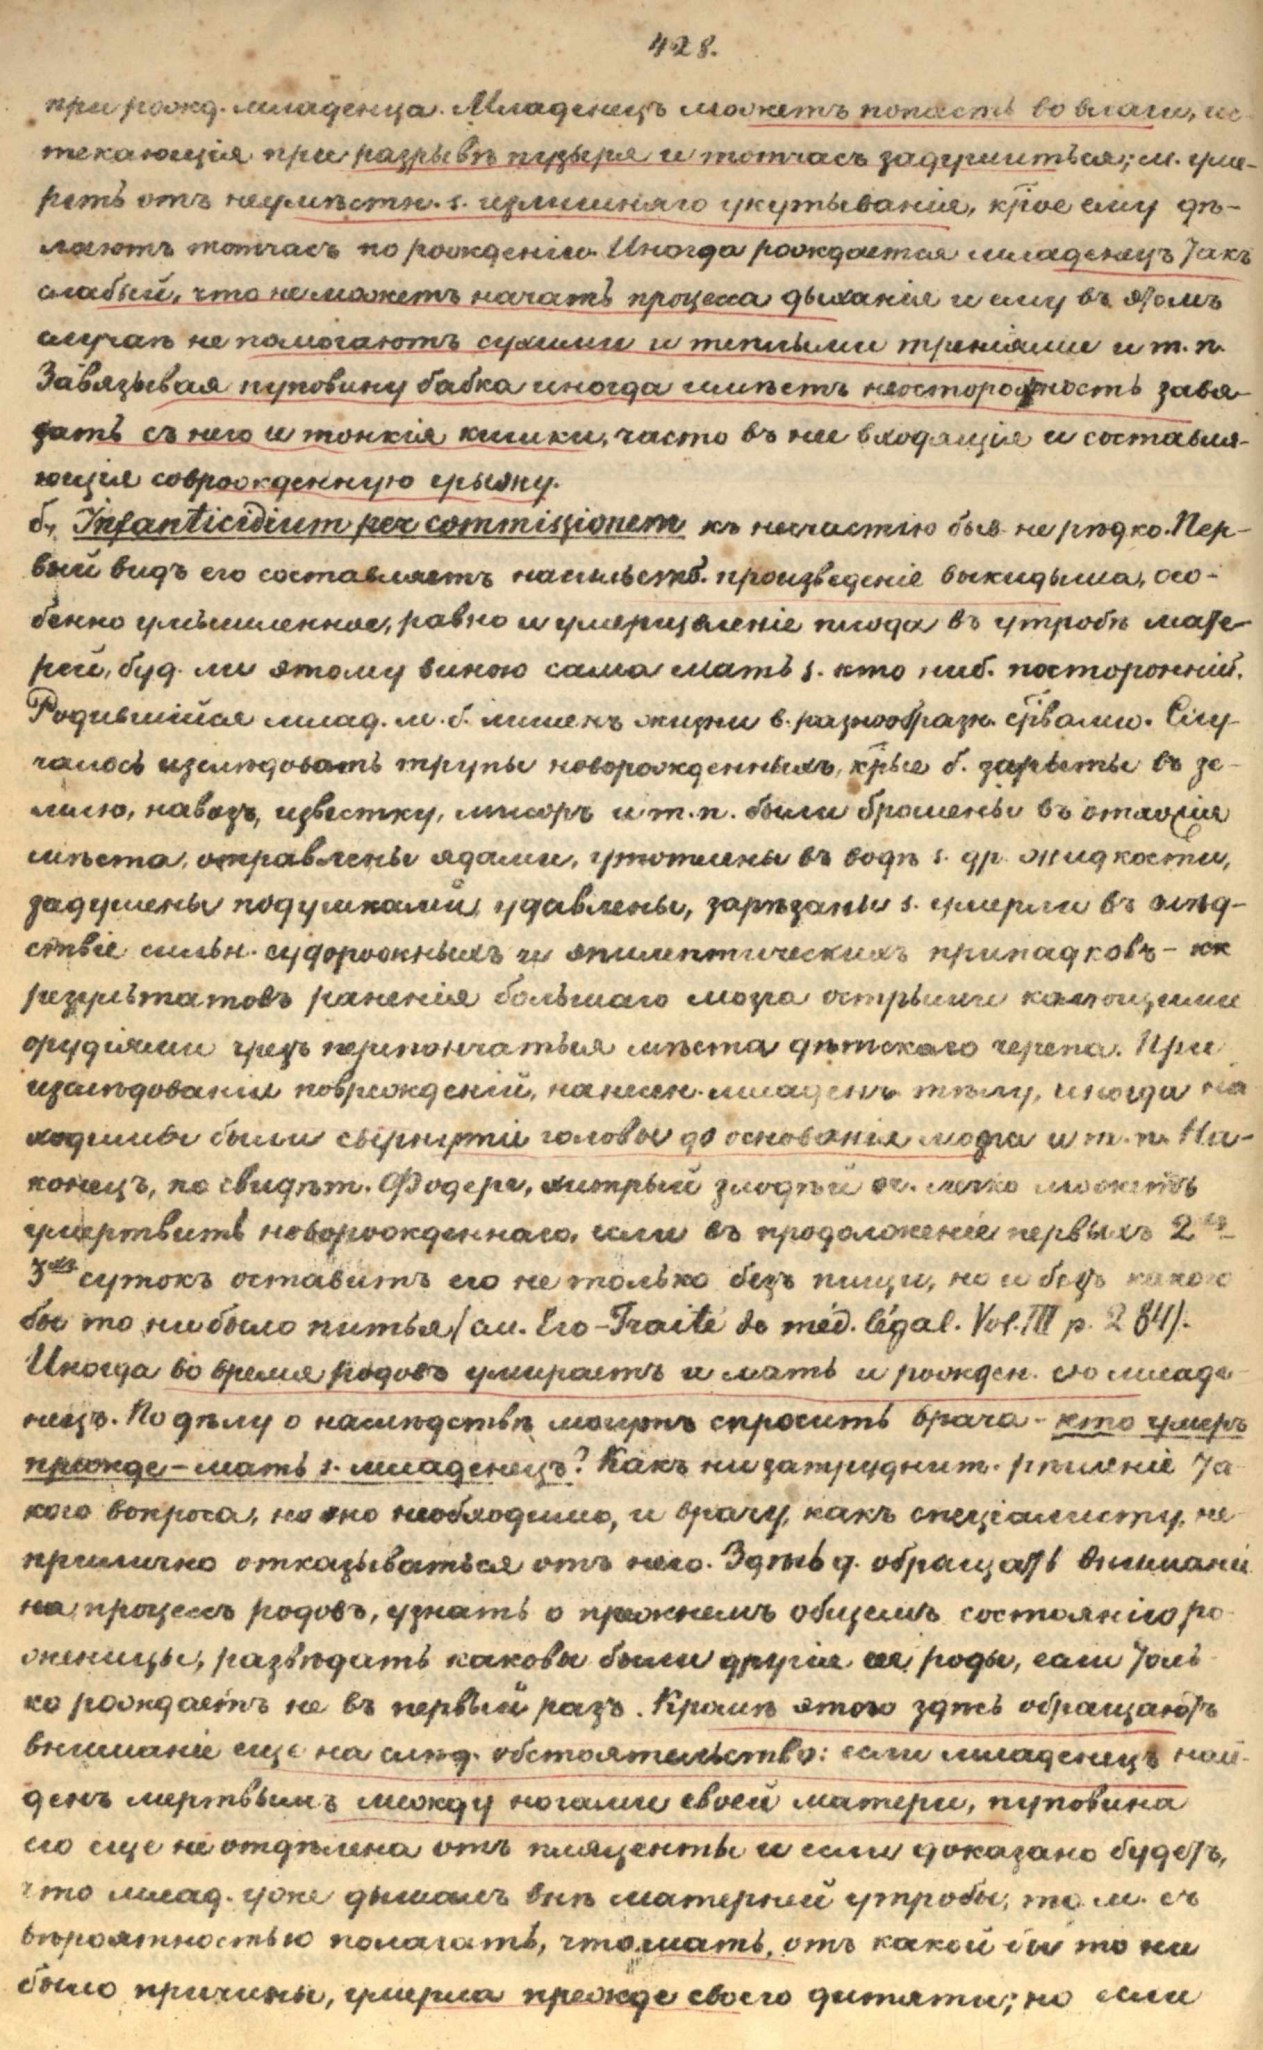 428.
при рожд. младенца. Младенецъ можетъ попасть во влаги, ис-
текающія при разрывѣ пузыря и тотчасъ задушиться; м. уме-
реть отъ неумѣстн. s. излишняго укутыванія, крое ему дѣ-
лаютъ тотчасъ по рожденію. Иногда рождается младенецъ такъ
слабый, что не можетъ начать процесса дыханія и ему въ этомъ
случаѣ не помогаютъ сухими и теплыми треніями и т. п.
Завязывая пуповину бабка иногда имѣетъ неосторожность завя-
зать съ нею и тонкія кишки, часто въ нее входящія и составля-
ющія соврожденную грыжу.
б, Infanticidium per commissionem къ несчастію быв. не рѣдко. Пер-
вый видъ его составляетъ насильств. произведеніе выкидыша, осо-
бенно умышленное, равно и умерщвленіе плода въ утробѣ мате-
рей, буд. ли этому виною сама мать s. кто ниб. посторонній.
Родившійся млад. м. б. лишенъ жизни в. разнообразн. срвами. Слу-
чалось изслѣдовать трупы новорожденныхъ, крые б. зарыты въ зе-
млю, навозъ, известку, мусоръ и т. п. были брошены въ отхожія
мѣста, отравлены ядами, утоплены въ водѣ s. др. жидкости,
задушены подушками, удавлены, зарѣзаны s. умерли въ слѣд-
ствіе сильн. судорожныхъ и эпилептическихъ припадковъ – кк
результатовъ раненія большаго мозга острыми колющими
орудіями чрезъ перепончатыя мѣста дѣтскаго черепа. При
изслѣдованіи поврежденій, нанесен. младенч. тѣлу, иногда на
ходимы были свернутіе головы до основанія мозга и т. п. На-
конецъ, по свидѣт. Фодере, хитрый злодѣй оч. легко можетъ
умертвить новорожденнаго, если въ продолженіе первыхъ 2хъ –
3хъ сутокъ оставитъ его не только безъ пищи, но и безъ какого
бы то ни было питья (см. Его – Traité de méd. légal. Vol. III p. 284).
Иногда во время родовъ умираетъ и мать и рожден. ею младе-
нецъ. По дѣлу о наслѣдствѣ могутъ спросить врача – кто умеръ
прежде – мать s. младенецъ? Какъ ни затруднит. рѣшеніе та
кого вопроса, но оно необходимо, и врачу, какъ спеціалисту, не
прилично отказываться отъ него. Здѣсь д. обращать вниманіе
на процессъ родовъ, узнать о прежнемъ общемъ состояніи ро-
женицы, развѣдать каковы были другіе ея роды, если толь-
ко рождаетъ не въ первый разъ. Кромѣ этого здѣсь обращаютъ
вниманіе еще на слѣд. обстоятельство: если младенецъ най-
денъ мертвымъ между ногами своей матери, пуповина
его еще не отдѣлена отъ пляценты и если доказано будетъ,
что млад. уже дышалъ внѣ матерней утробы, то м. съ
вѣроятностью полагать, что мать, отъ какой бы то ни
было причины, умерла прежде своего дитяти; но если